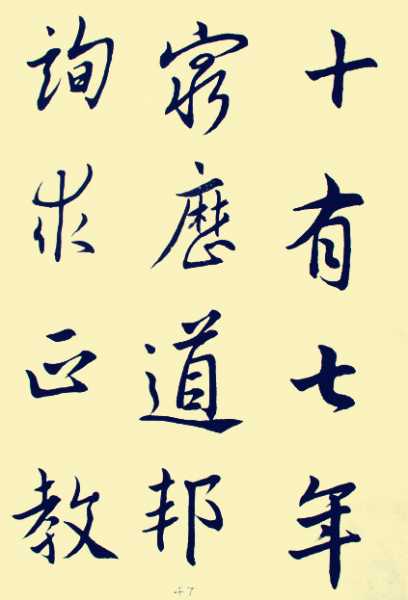 十有七年
窮歷道邦
詢求正教
47